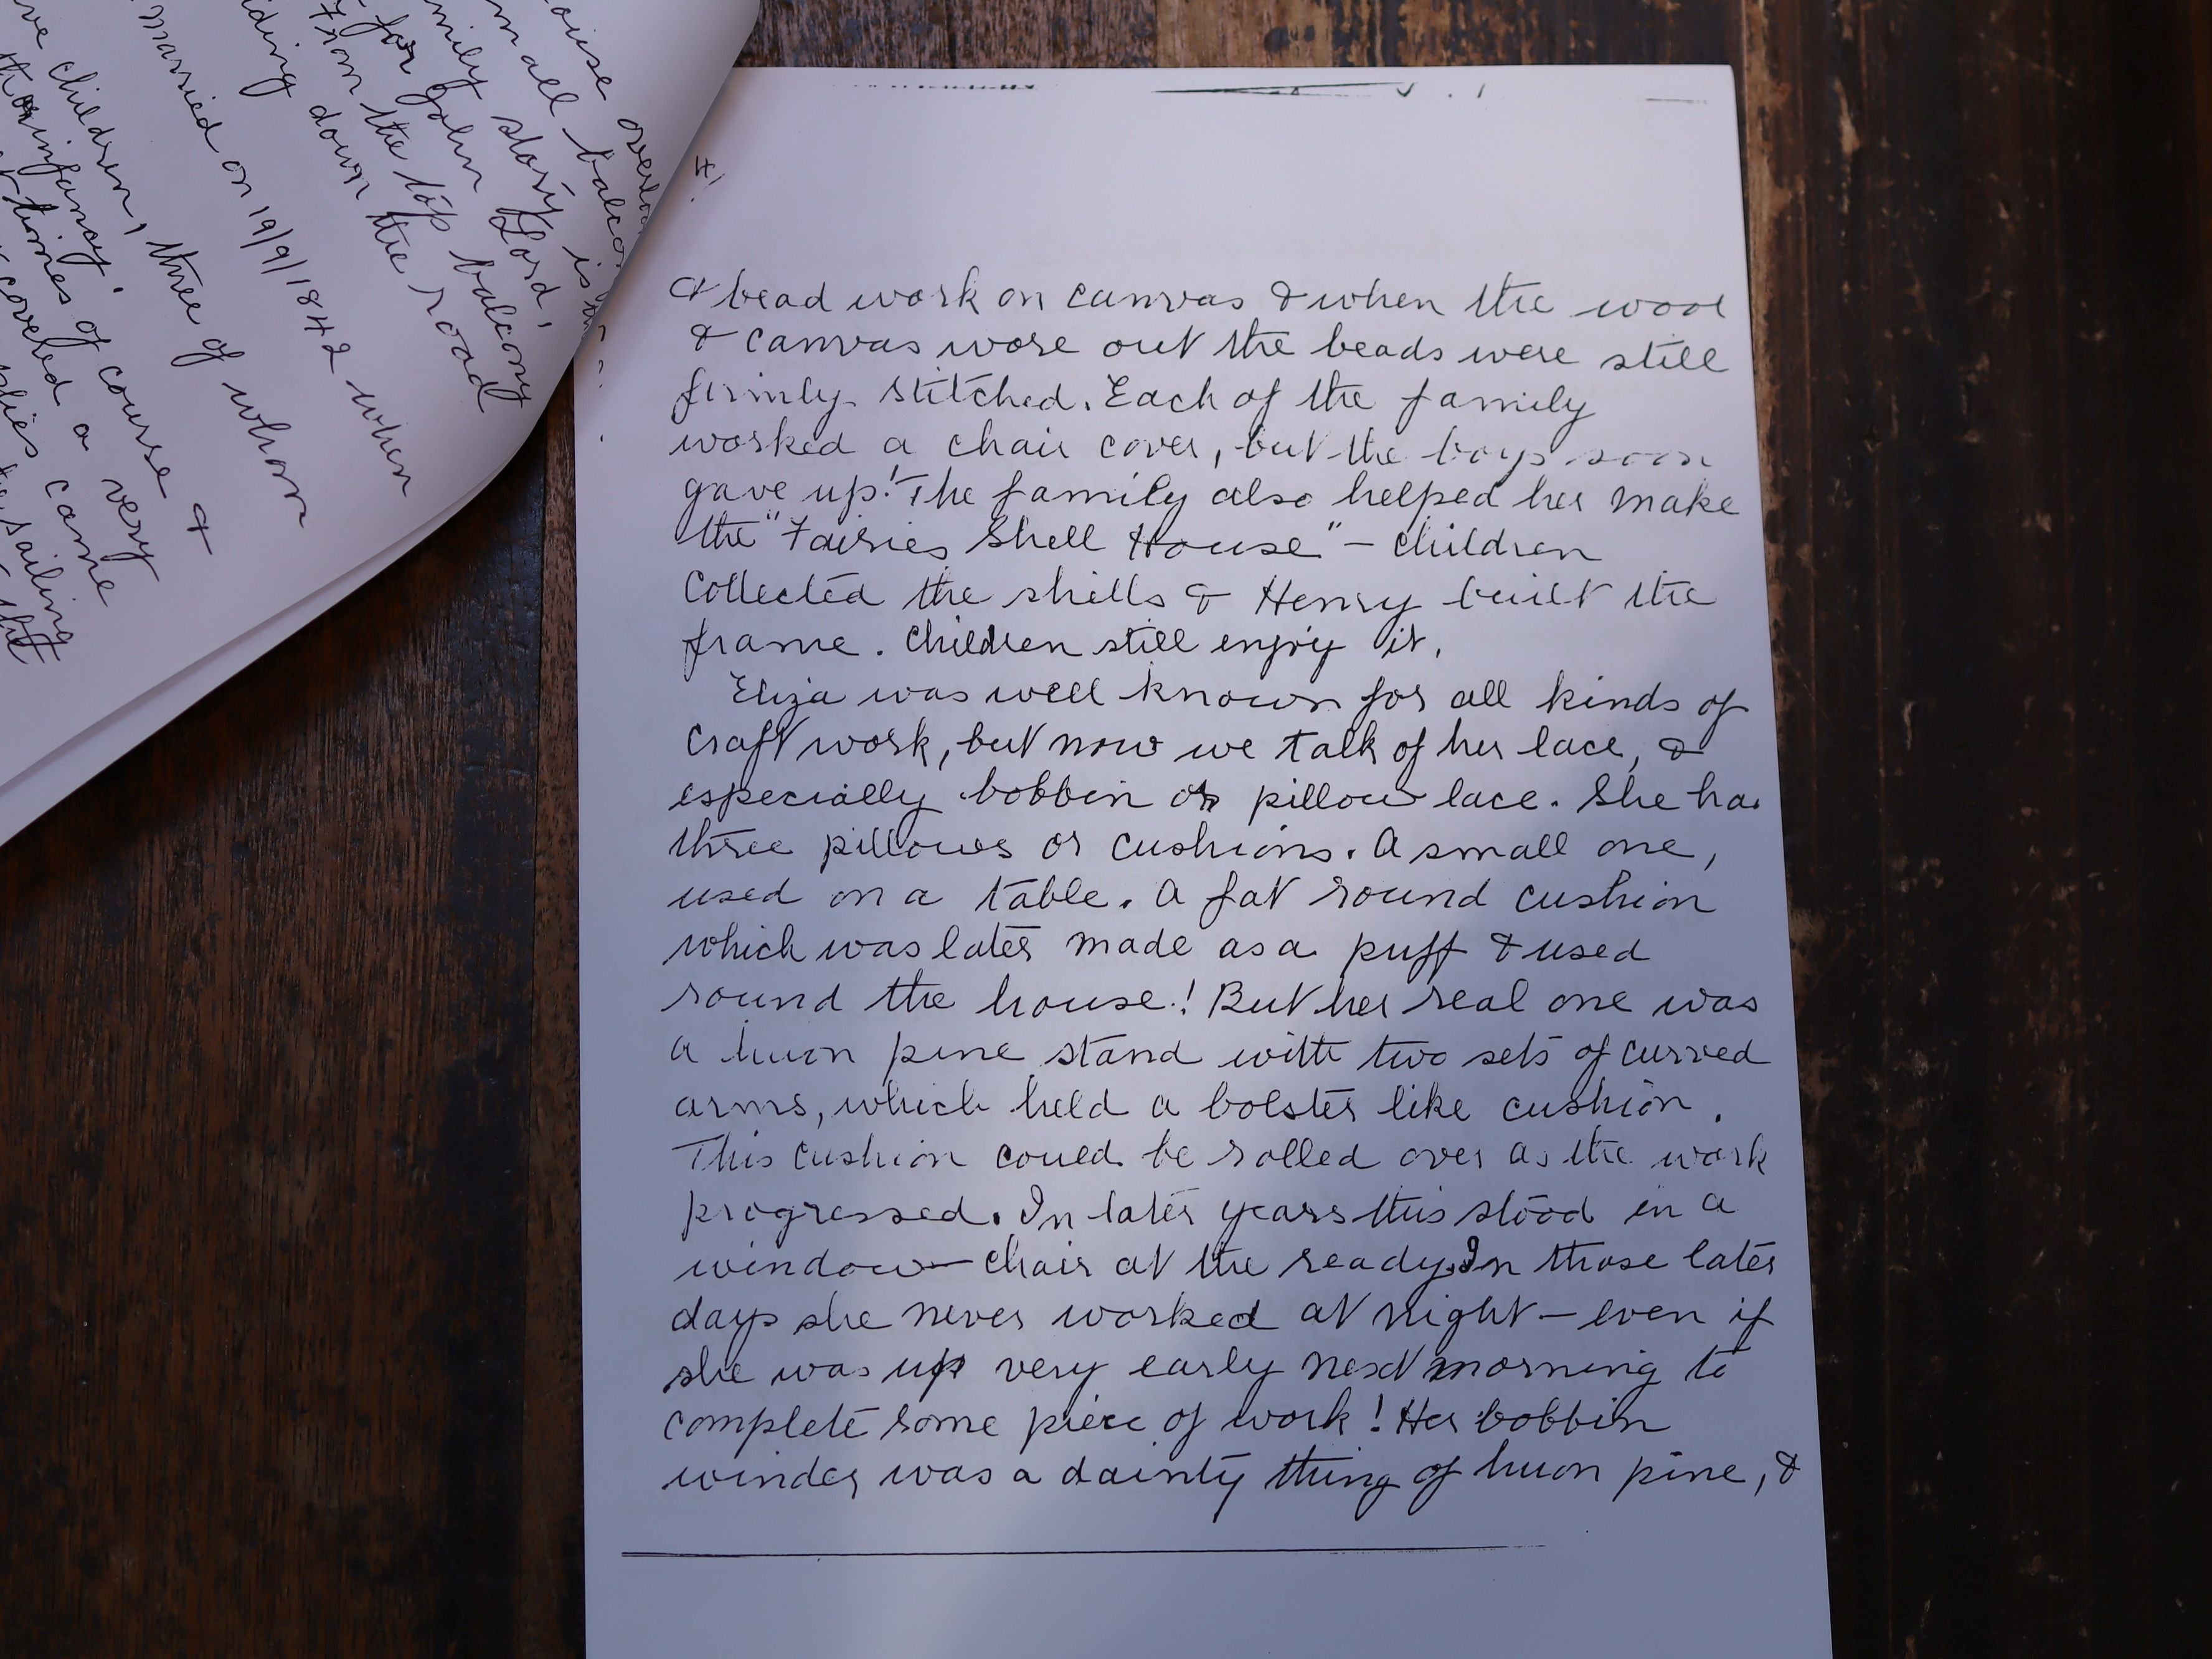 ouse
m all balco
mily story is
for John Lord,
From the top balcony
ding down the road
married on 19/9/1842 when
ve children, three of whom
infancy.
times of course &
covered a very
plies came
sailing
4.
& bead work on canvas & when the wool
& canvas wore out the beads were still
firmly stitched. Each of the family
worked a chair cover, but the boys soon
gave up! The family also helped her make
the "Fairies Shell House" – children
collected the shells & Henry built the
frame. Children still enjoy it.
Eliza was well known for all kinds of
craft work, but now we talk of her lace, &
especially bobbin or pillow lace. She ha
three pillows or cushions. A small one,
used on a table. A fat round cushion
which was later made as a puff & used
round the house! But her real one was
a huon pine stand with two sets of curved
arms, which held a bolster like cushion.
This cushion could be rolled over as the work
progressed. In later years this stood in a
window – chair at the ready. In those later
days she never worked at night – even if
she was up very early next morning to
complete some piece of work! Her bobbin
winder was a dainty thing of huon pine, &